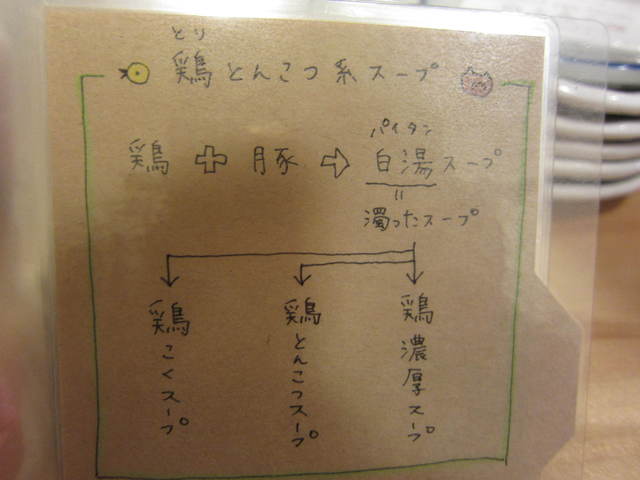 とり
鶏とんこつ系スープ
鶏 + 豚 ⇨ 白湯スープ
パイタン
=
濁ったスープ
鶏こくスープ
鶏とんこつスープ
鶏濃厚スープ